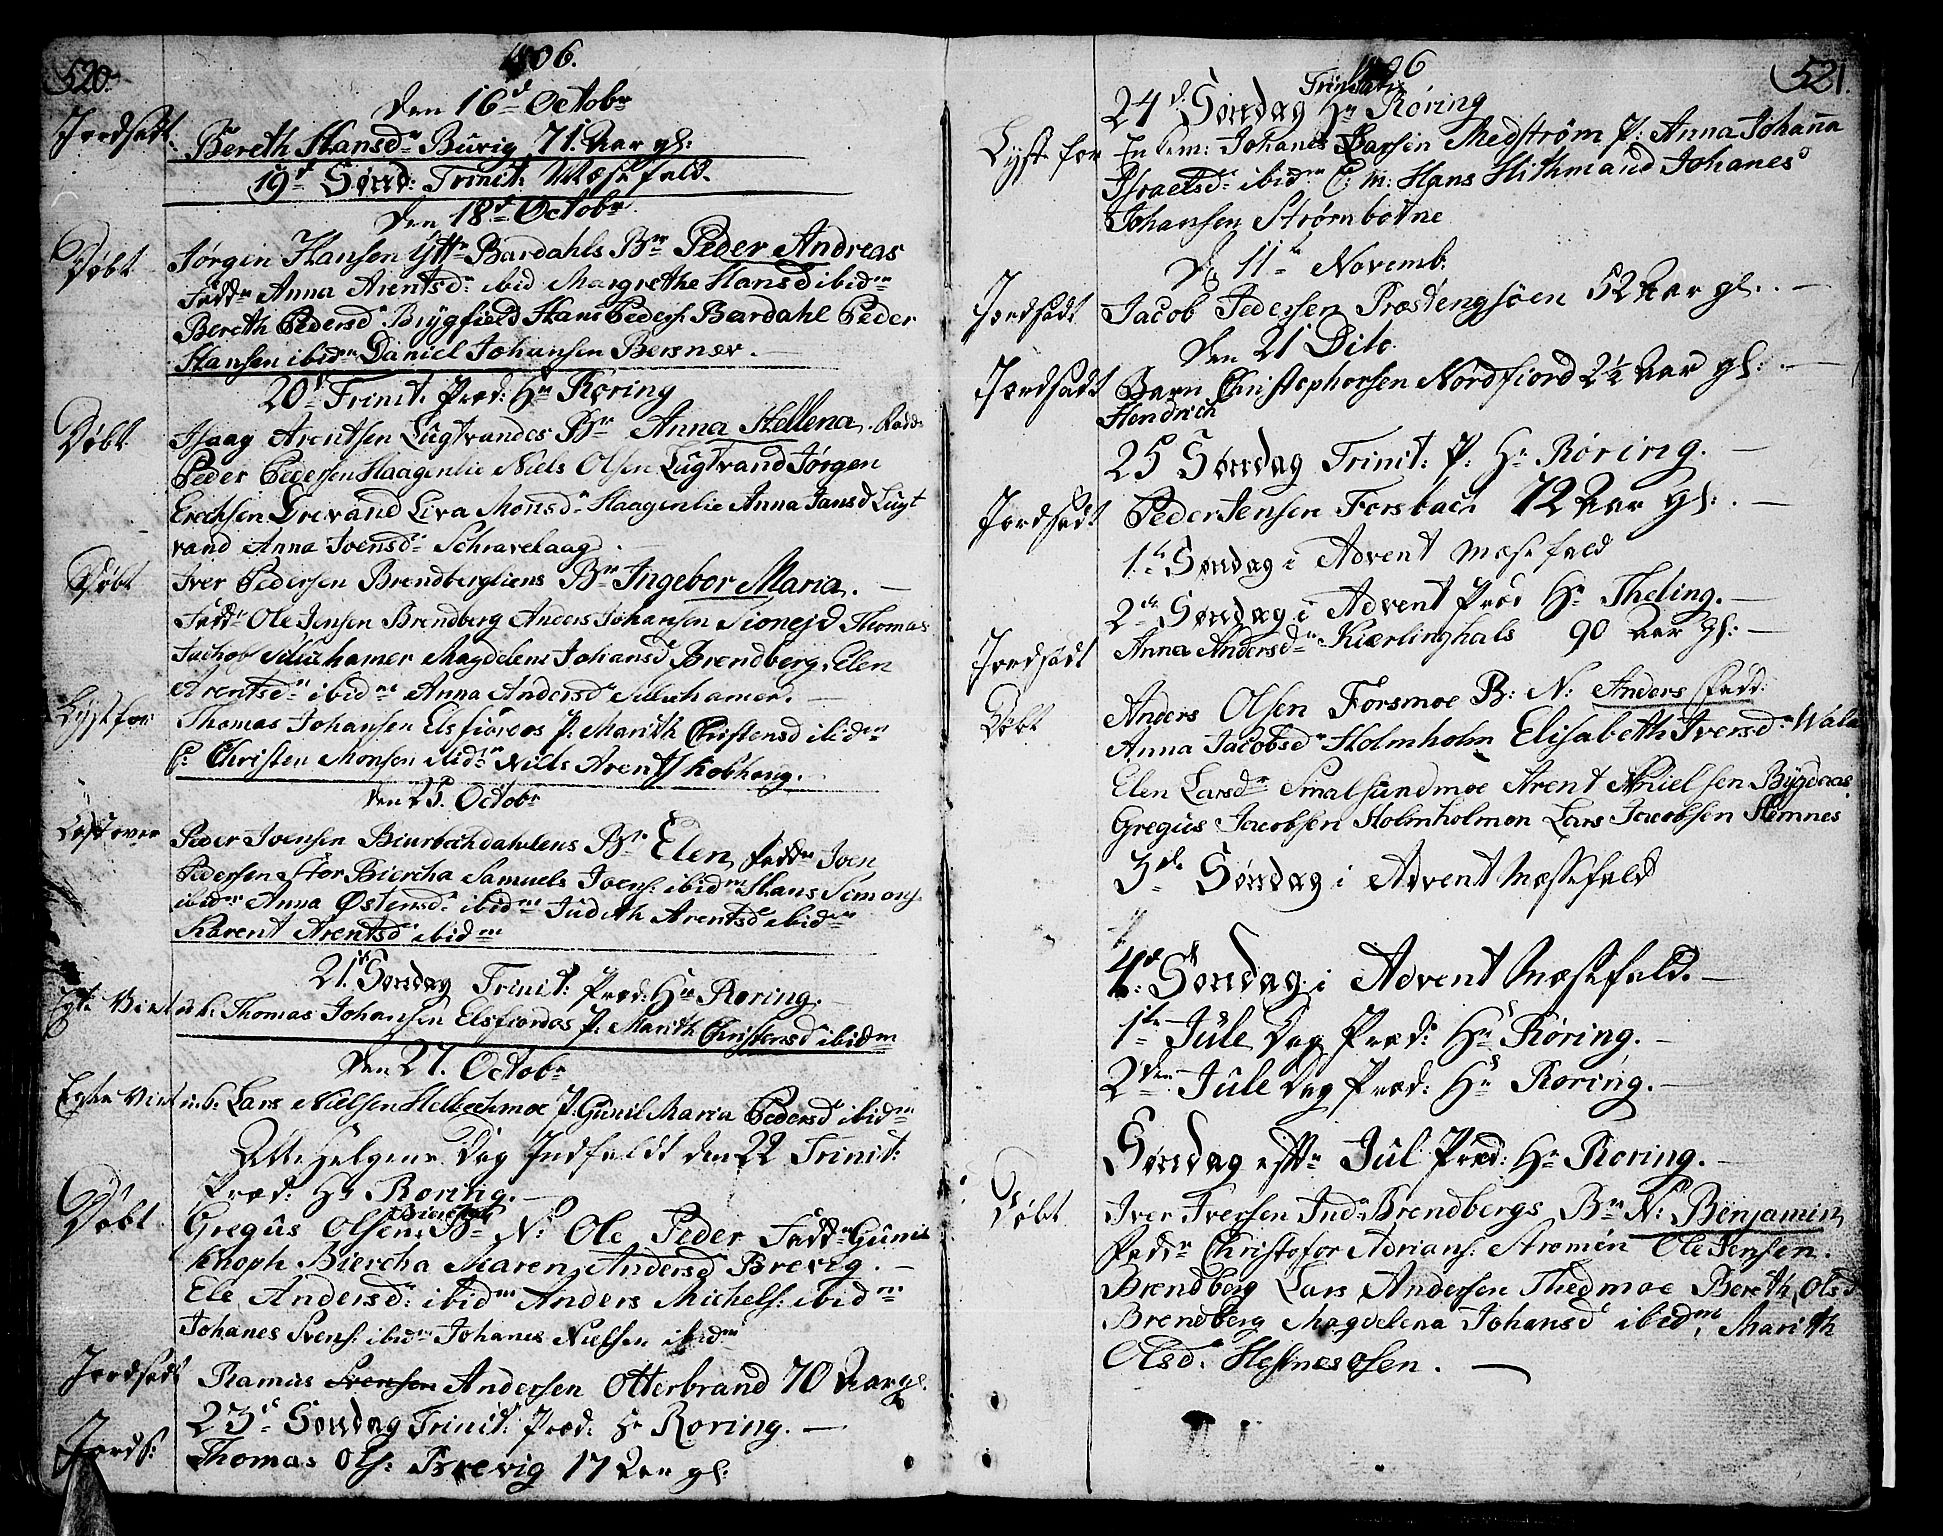 520.
1806.
Den 16d Octobr
Jordsatt. Bereth Hansdr Buvig 71. Aar gl:
19d Sønd: Trinit: Mæsefald.
Den 18d Octobr
Døbt Jørgin Hansen Yttr Bardahls Brn Peder Andreas
Faddr Anna Arentsdr ibid Margrethe Hansd ibidm
Bereth Pedersdr Brygfield Hans Peders: Bardahl Peder
Hansen ibidm Daniel Johansen Bersner.
20d Trinit. Præd: Hr Røring
Døbt Isaag Arentsen Lugtvandes Brn Anna Hellena. Fadd:
Peder Pedersen Haagenlie Niels Olsen Lugtvand Jørgen
Erechsen Drevand Liva Monsdr Haagenlie Anna Jansd Lugt
vand Anna Joensdr Schravelaag
Døbt Iver Pedersen Brendbergliens Brn Ingebor Maria.
Faddr Ole Jensen Brendberg Anders Johansen Sionejd Thomas
Jachob Silluhamer Magdelena Johansd Brendberg Elen
Arentsdr ibidm Anna Andersdr Silluhamer.
Lyst for Thomas Johansen Elsfiordos P. Marith Christensd ibidm
C: Christen Monsen ibidm Niels Arents Kobhoug.
Den 25. Octobr
Læst over Peder Joensen Biurbæchdahlens Brn Elen, Faddr Joen
Pedersen Stor Biercha Samuels Joens: ibidm Hans Simons:
ibidm Anna Østensdr ibidm Judith Arentsdr ibidm
Karent Arentsdr ibidm
21d Søndag Trinit: Præd: Hr Røring.
Egte Viet u.k. Thomas Johansen Elsfiordos P. Marith Christensd ibidm
Den 27. Octobr
Egte Viet u.b. Lars Nielsen Hellechmoe P. Gunil Maria Pedersd ibidm
Alle Helgens Dag Indfaldt den 22 Trinit:
Præd: Hr Røring.
Biercha
Døbt Gregus Olsen Brn N: Ole Peder Faddr Gunil
Knoph Biercha Maren Andersd Brevig.
Ele Andersdr ibidm Anders Michels: ibidm
Johanes Svens: ibidm Johanes Nielsen ibidm
Jordsadt Ramus Svensen Andersen Otterbrand 70 Aar gl.
23d Søndag Trinit: Præd: Hr Røring.
Jords: Thomas Ols: Brevig 17 Aar gl:
521.
1806
Trinitatis
24d: Søndag Hr Røring
Lyst for Enkem: Johanes Larsen Medstrøm P: Anna Johana
Israelsdr ibidm C: m: Hans Hithmand Johanes
Johansen Strømbotne
D. 11te Novemb.
Jordsadt Jacob Pedersen Præstengsøen 52 Aar gl.
Den 21 Dito
Jordsadt Barn Christophersen Nordfiord 2½ Aar gl:
Hendrich
25 Søndag Trinit: P: Hr Røring.
Jordsadt Peder Jensen Forsbach 72 Aar gl:
1te Søndag i Advent Mæsefald
2den Søndag i Advent Præd Hr Theling.
Jordsadt Anna Andersdr Kierlinghals 90 Aar gl:
Døbt Anders Olsen Forsmoe B: N: Anders Fadd:
Anna Jacobsdr Holmholm Elisabeth Iversdr Wala
Elen Larsdr Smalsundmoe Arent Nielsen Bygdnæs.
Gregus Jacobsen Holmholmen Lars Jacobsen Hemnes
3de Søndag i Advent Mæssefald
4de Søndag i Advent Mæsefald.
1te Jule Dag Præd: Hr Røring.
2den Jule Dag Præd: Hr Røring.
Søndag eftr Jul Præd: Hr Røring.
Døbt Iver Iversen Ind: Brendbergs Brn N: Benjamin
Faddr Christofor Adrians: Strømen Ole Jensen.
Brendberg Lars Andersen Thedmoe Bereth Olsd
Brendberg Magdelena Johansd ibidm, Marith
Olsdr Hestnesosen.